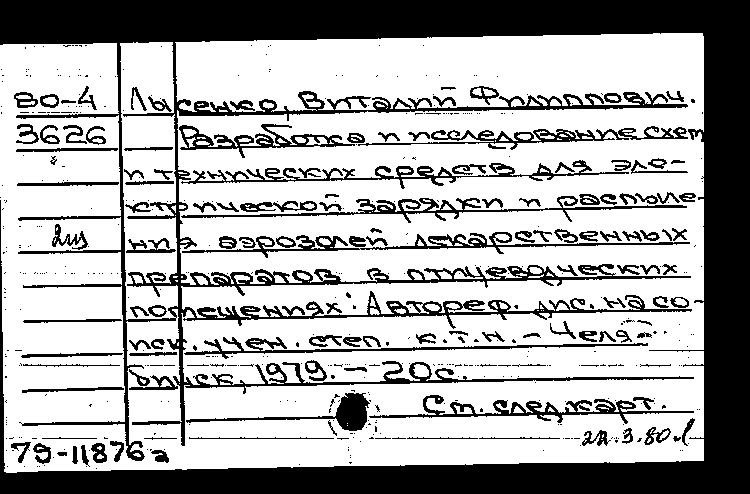 80-4 Лысенко, Виталий Филиппович.
3626 Разработка и исследование схем
и технических средств для эле-
ктрической зарядки и распыле-
2из ния аэрозолей лекарственных
препаратов в птицеводческих
помещениях: Автореф. дис. на со-
иск. учен. степ. к.т.н. - Челя-
бинск, 1979. - 20с.
См. след. карт.
79-11876а 22.3.80